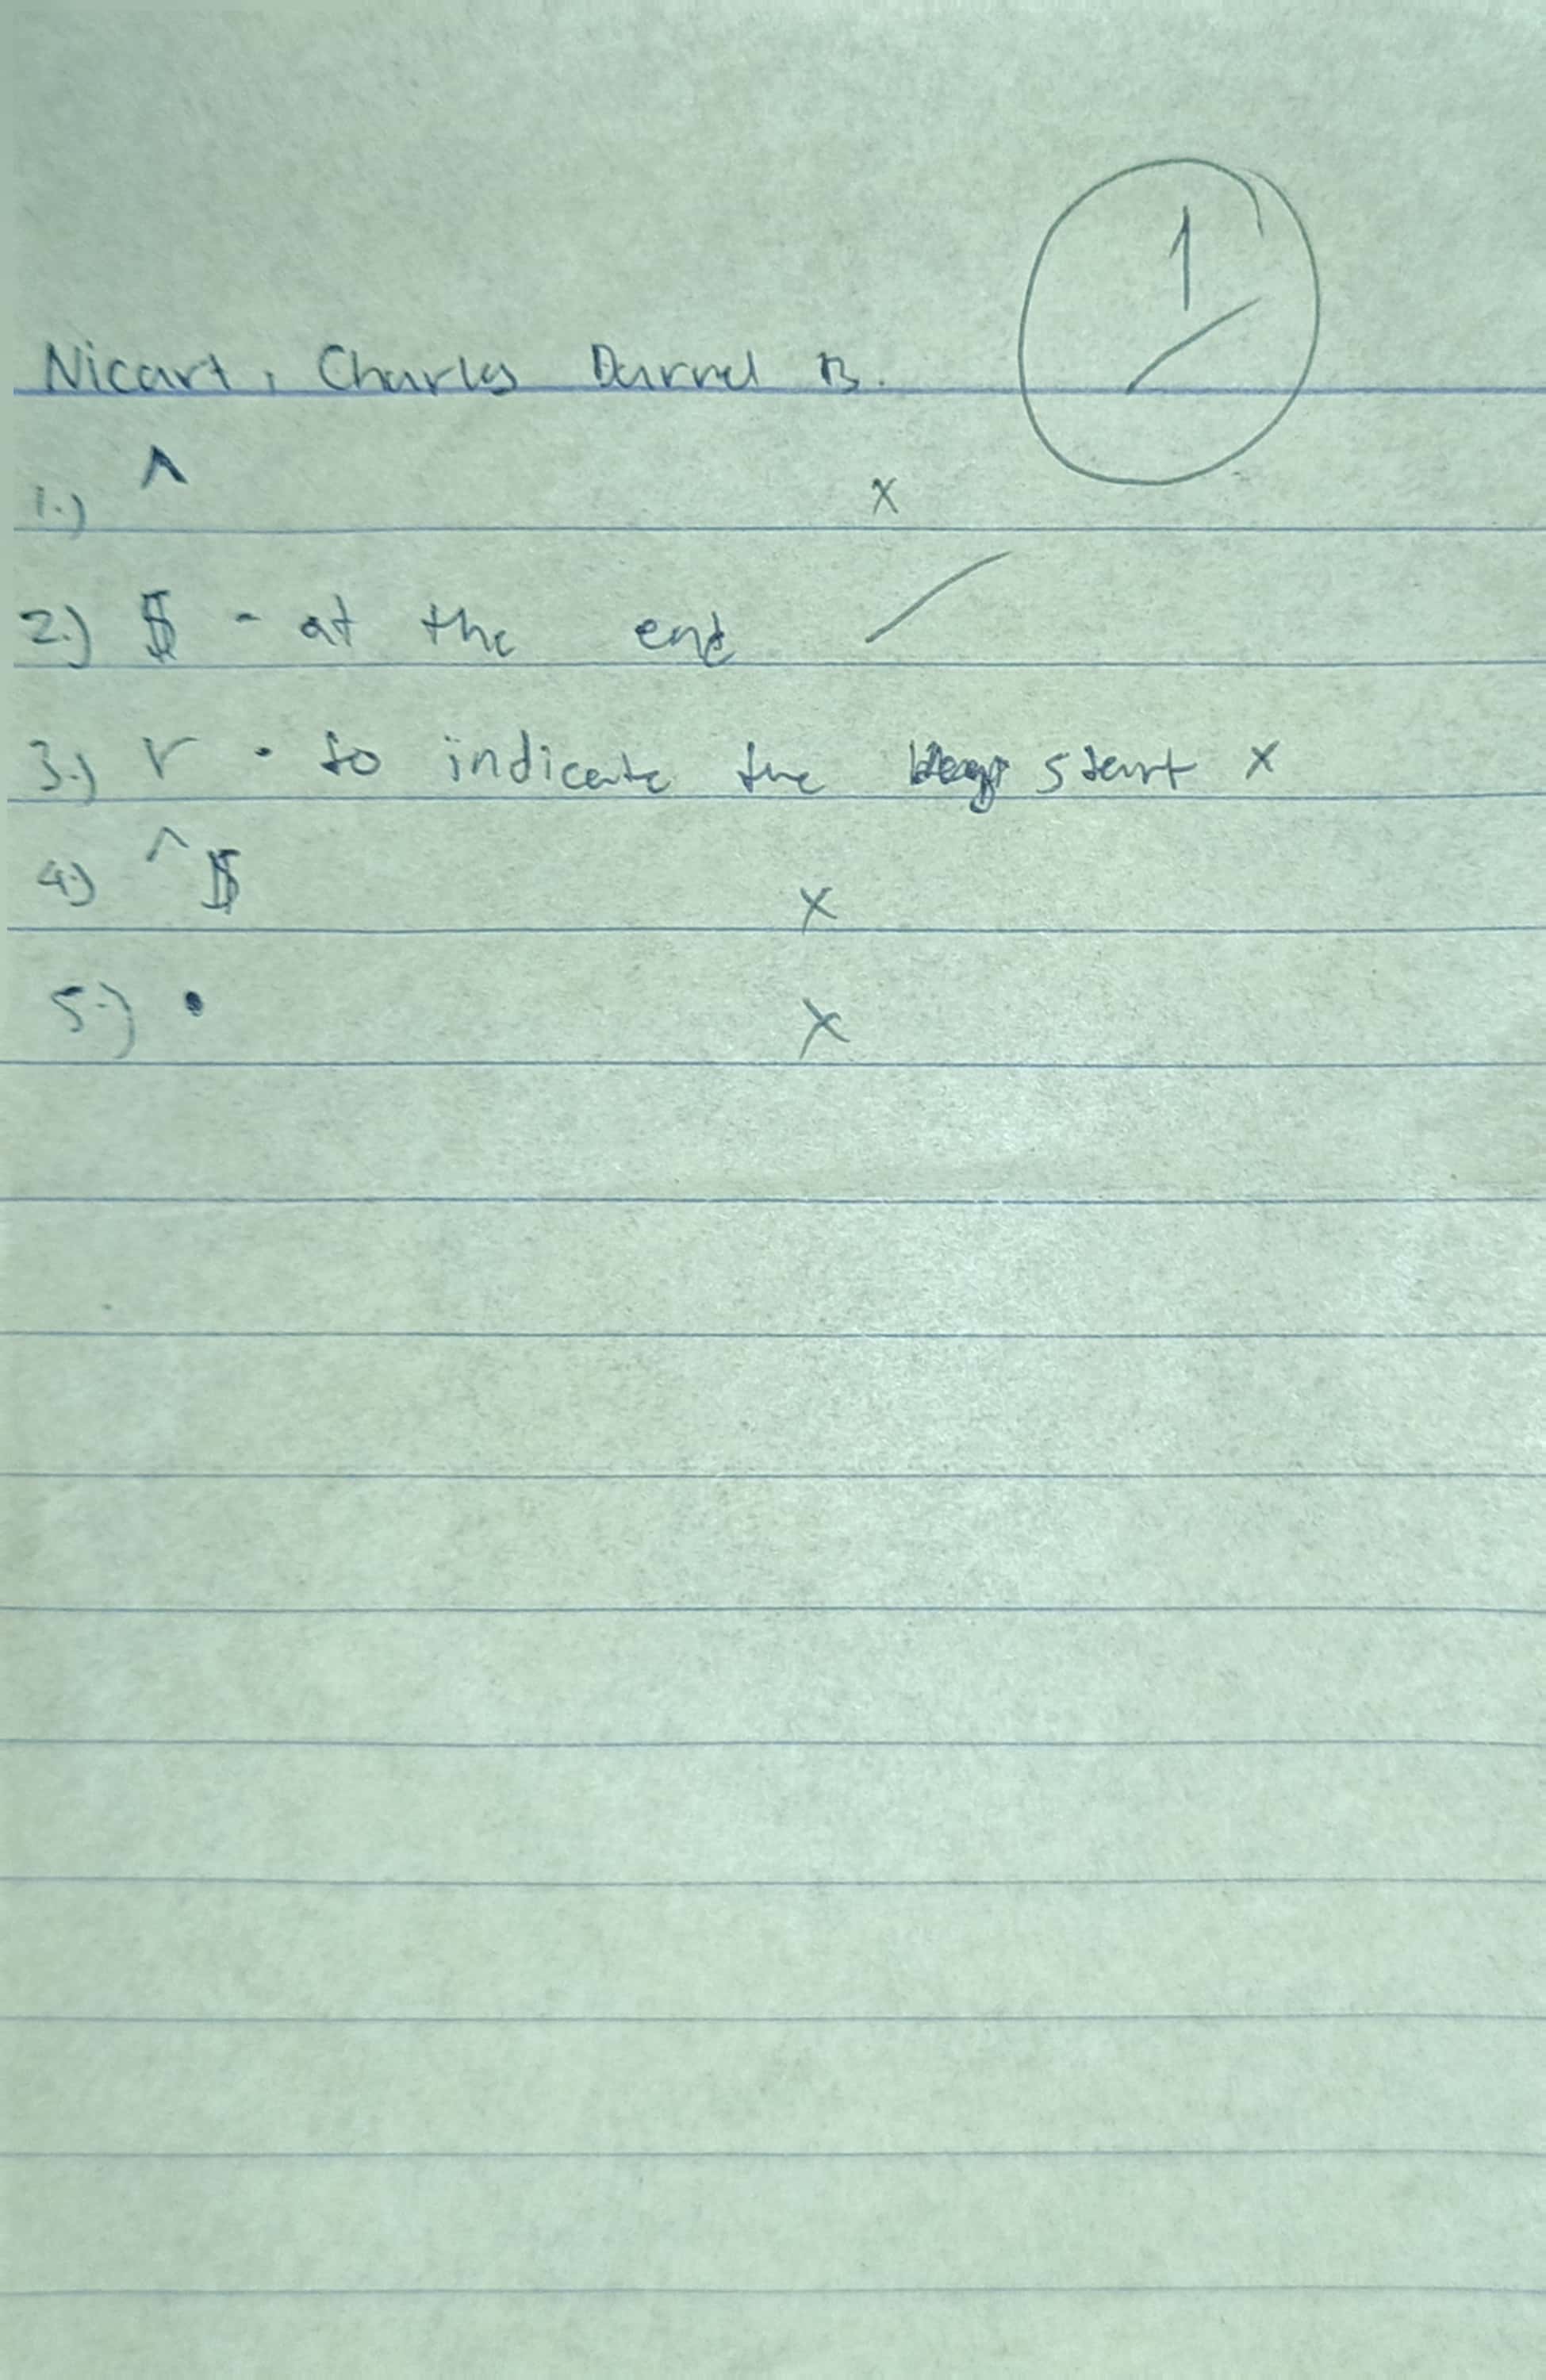 1
Nicart, Charles Darrel B.
1.) ^ x
2.) $ - at the end /
3.) r - to indicate the start x
4.) ^$ x
5.) • x